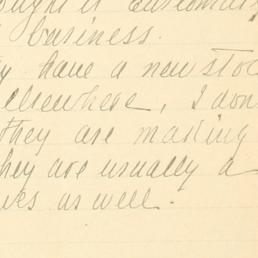 ought it customa
business.
y have a new sto
elsewhere, I don
they are making
hey are usually a
ks as well.